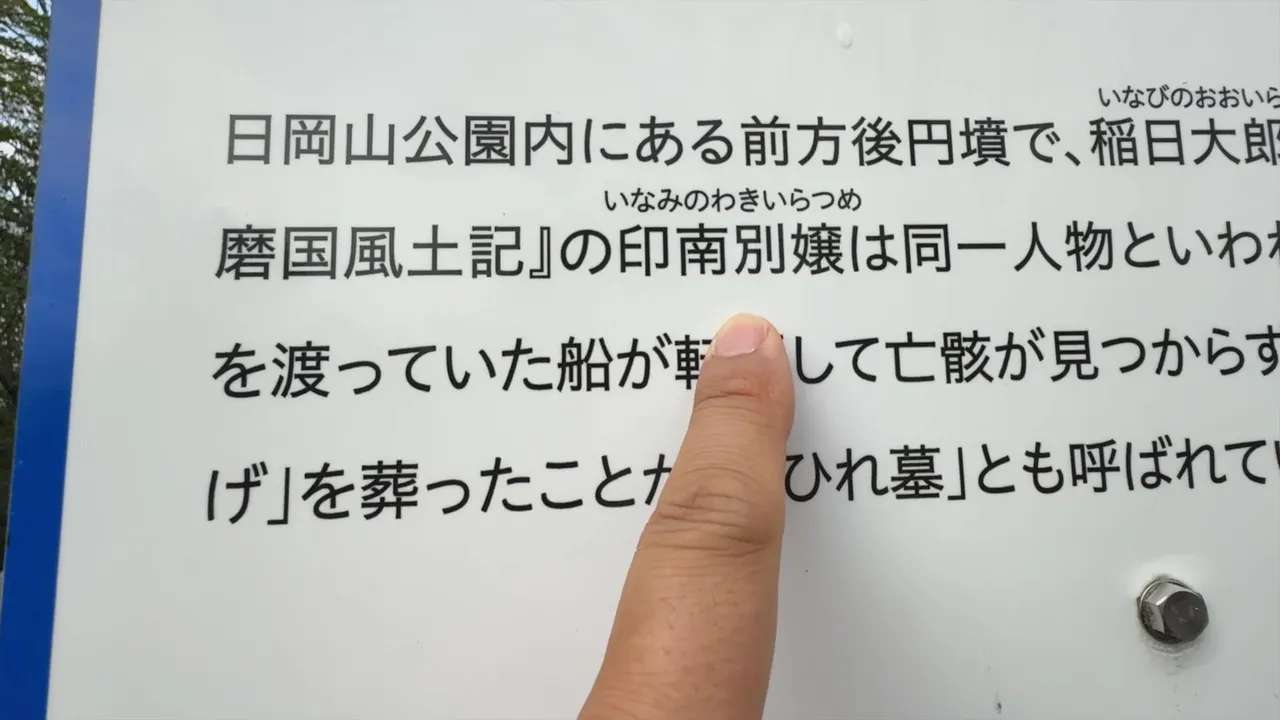 いなびのおおいら
日岡山公園内にある前方後円墳で、稲日大郎
いなみのわきいらつめ
磨国風土記』の印南別嬢は同一人物といわ
を渡っていた船が転 して亡骸が見つからず
げ」を葬ったことか ひれ墓」とも呼ばれてい